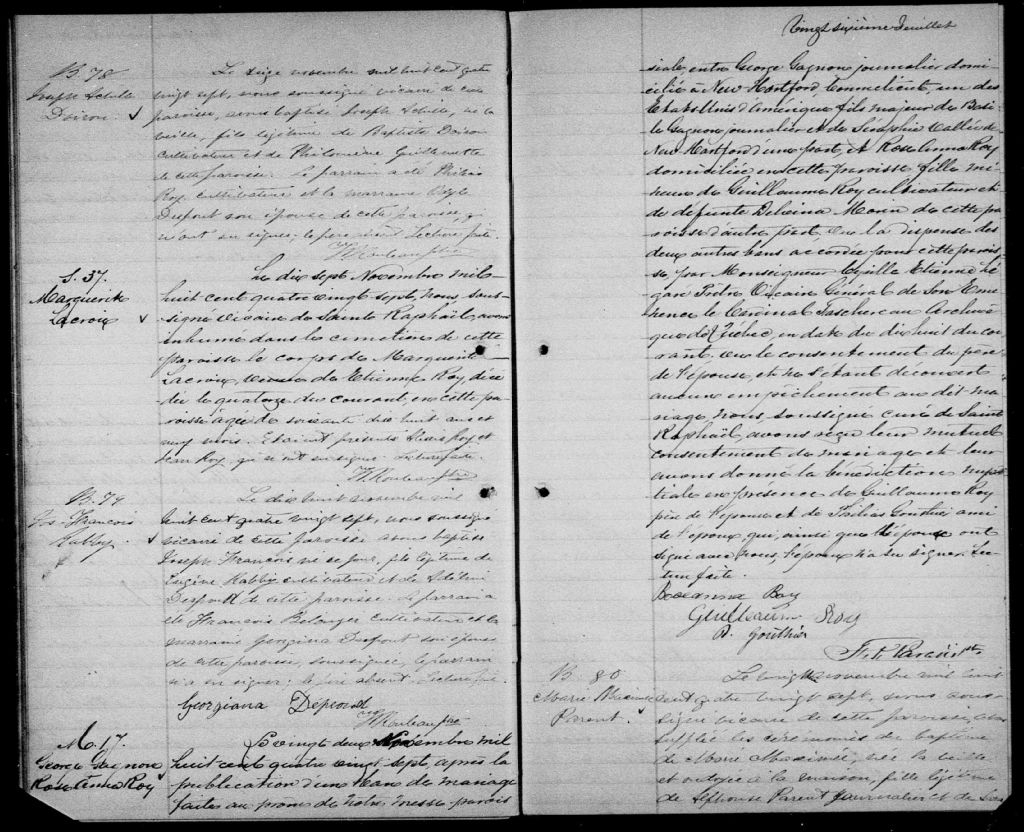 B. 78
Joseph Achille
Doiron
Le seize novembre mil huit cent quatre
vingt sept, nous soussigné vicaire de cette
paroisse, avons baptisé Joseph Achille, né la
veille, fils légitime de Baptiste Doiron
cultivateur et de Philomène Guillemette
de cette paroisse. Le parrain a été
Roy cultivateur et la marraine
son épouse de cette paroisse, qui
n'ont su signer, le père absent. Lecture faite.
Rouleau ptre
S. 37.
Marguerite
Lacroix
Le dix sept Novembre mil
huit cent quatre vingt sept, Nous, sous-
signé vicaire de Sainte Raphaël, avons
inhumé dans le cimetière de cette
paroisse le corps de Marguerite
Lacroix, veuve de Etienne Roy, décé
dée le quatorze du courant, en cette pa-
roisse âgée de soixante dix huit ans et
neuf mois. Etaient présents Roy et
Jean Roy, qui n'ont su signer. Lecture faite.
Rouleau ptre
B. 79
Jos. François
Le dix huit novembre mil
huit cent quatre vingt sept, nous soussigné
vicaire de cette paroisse avons baptisé
Joseph François né ce jour, fils légitime de
Eugène cultivateur et de
de cette paroisse. Le parrain a
été François Belanger cultivateur et la
marraine Georgina son épouse
de cette paroisse, soussignée, le parrain
n'a su signer: le père absent. Lecture faite.
Georgiana
Rouleau ptre
M. 17.
George Gagnon
Rose Anna Roy
Le vingt deux Novembre mil
huit cent quatre vingt sept, après la
publication d'un ban de mariage
faite au prône de notre messe parois
Vingt sixième feuillet
siale entre George Gagnon journalier domi-
cilié à New Hartford Connecticut, un des
Etats Unis d'Amérique fils majeur de Basi-
le Gagnon journalier et de Séraphie Vallée de
New Hartford d'une part, et Rose Anna Roy
domiciliée en cette paroisse fille mi-
neure de Guillaume Roy cultivateur et
de défunte Delvina Morin de cette pa-
roisse d'autre part. Vu la dispense des
deux autres bans accordée pour cette parois
se, par Monseigneur Cyrille Etienne Lé
garé Prêtre Vicaire Général de Son Emi-
nence le Cardinal Taschereau Archevê
que de Québec, en date du dix huit du cou
rant, vu le consentement du père
de l'épouse, et ne s'étant découvert
aucun empêchement au dit ma-
riage, Nous, soussigné curé de Saint
Raphaël, avons reçu leur mutuel
consentement de mariage et leur
avons donné la bénédiction nup
tiale en présence de Guillaume Roy
père de l'épouse et de Gouthier ami
de l'époux, qui, ainsi que l'épouse ont
signé avec nous, l'époux n'a su signer. Lec
ture faite.
Roseanna Roy
Guillaume Roy
B. Gouthier
Paradis ptre
B. 80
Marie
Parent.
Le vingt novembre mil huit
cent quatre vingt sept, nous sous-
signé vicaire de cette paroisse, avons
suppléé les cérémonies du baptême
de Marie née la veille
et ondoyée à la maison, fille légitime
de Alphonse Parent Journalier et de